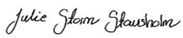 Julie Storm Stausholm